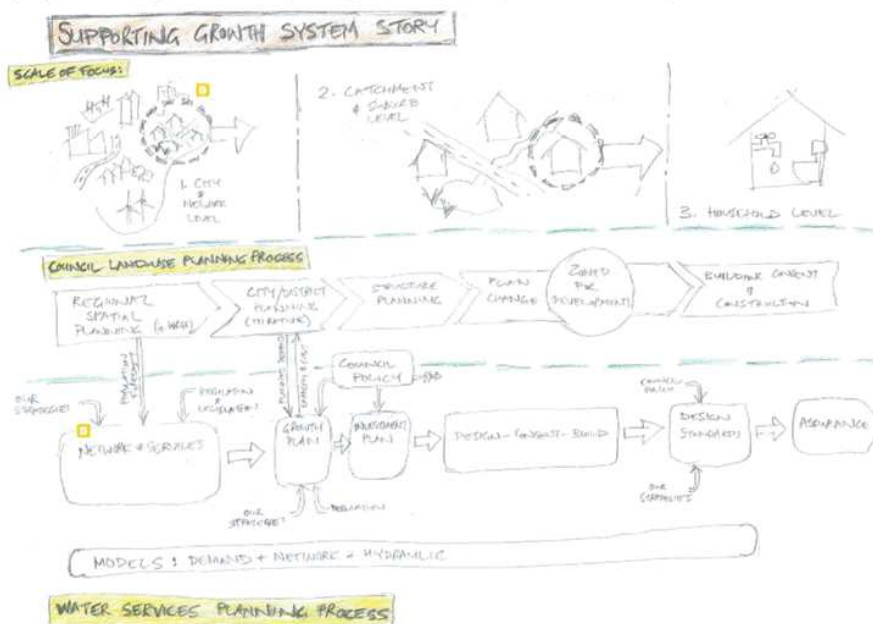 SUPPORTING GROWTH SYSTEM STORY
SCALE OF FOCUS:
1. CITY &
NETWORK
LEVEL
2. CATCHMENT
& SUBURB
LEVEL
3. HOUSEHOLD LEVEL
COUNCIL LANDUSE PLANNING PROCESS
REGIONAL
SPATIAL
PLANNING
CITY/DISTRICT
PLANNING
(ITERATIVE)
STRUCTURE
PLANNING
PLAN
CHANGE
ZONED
FOR
DEVELOPMENT
BUILDING CONSENT
&
CONSTRUCTION
POPULATION
FORECAST
COUNCIL
POLICY
OUR
STRATEGIES
REGULATION
&
LEGISLATION
COUNCIL
POLICY
NETWORK & SERVICES
GROWTH
PLAN
INVESTMENT
PLAN
DESIGN-CONSENT-BUILD
DESIGN
STANDARDS
ASSURANCE
OUR
STRATEGIES
REGULATION
OUR
STRATEGIES
MODELS : DEMAND + NETWORK + HYDRAULIC
WATER SERVICES PLANNING PROCESS